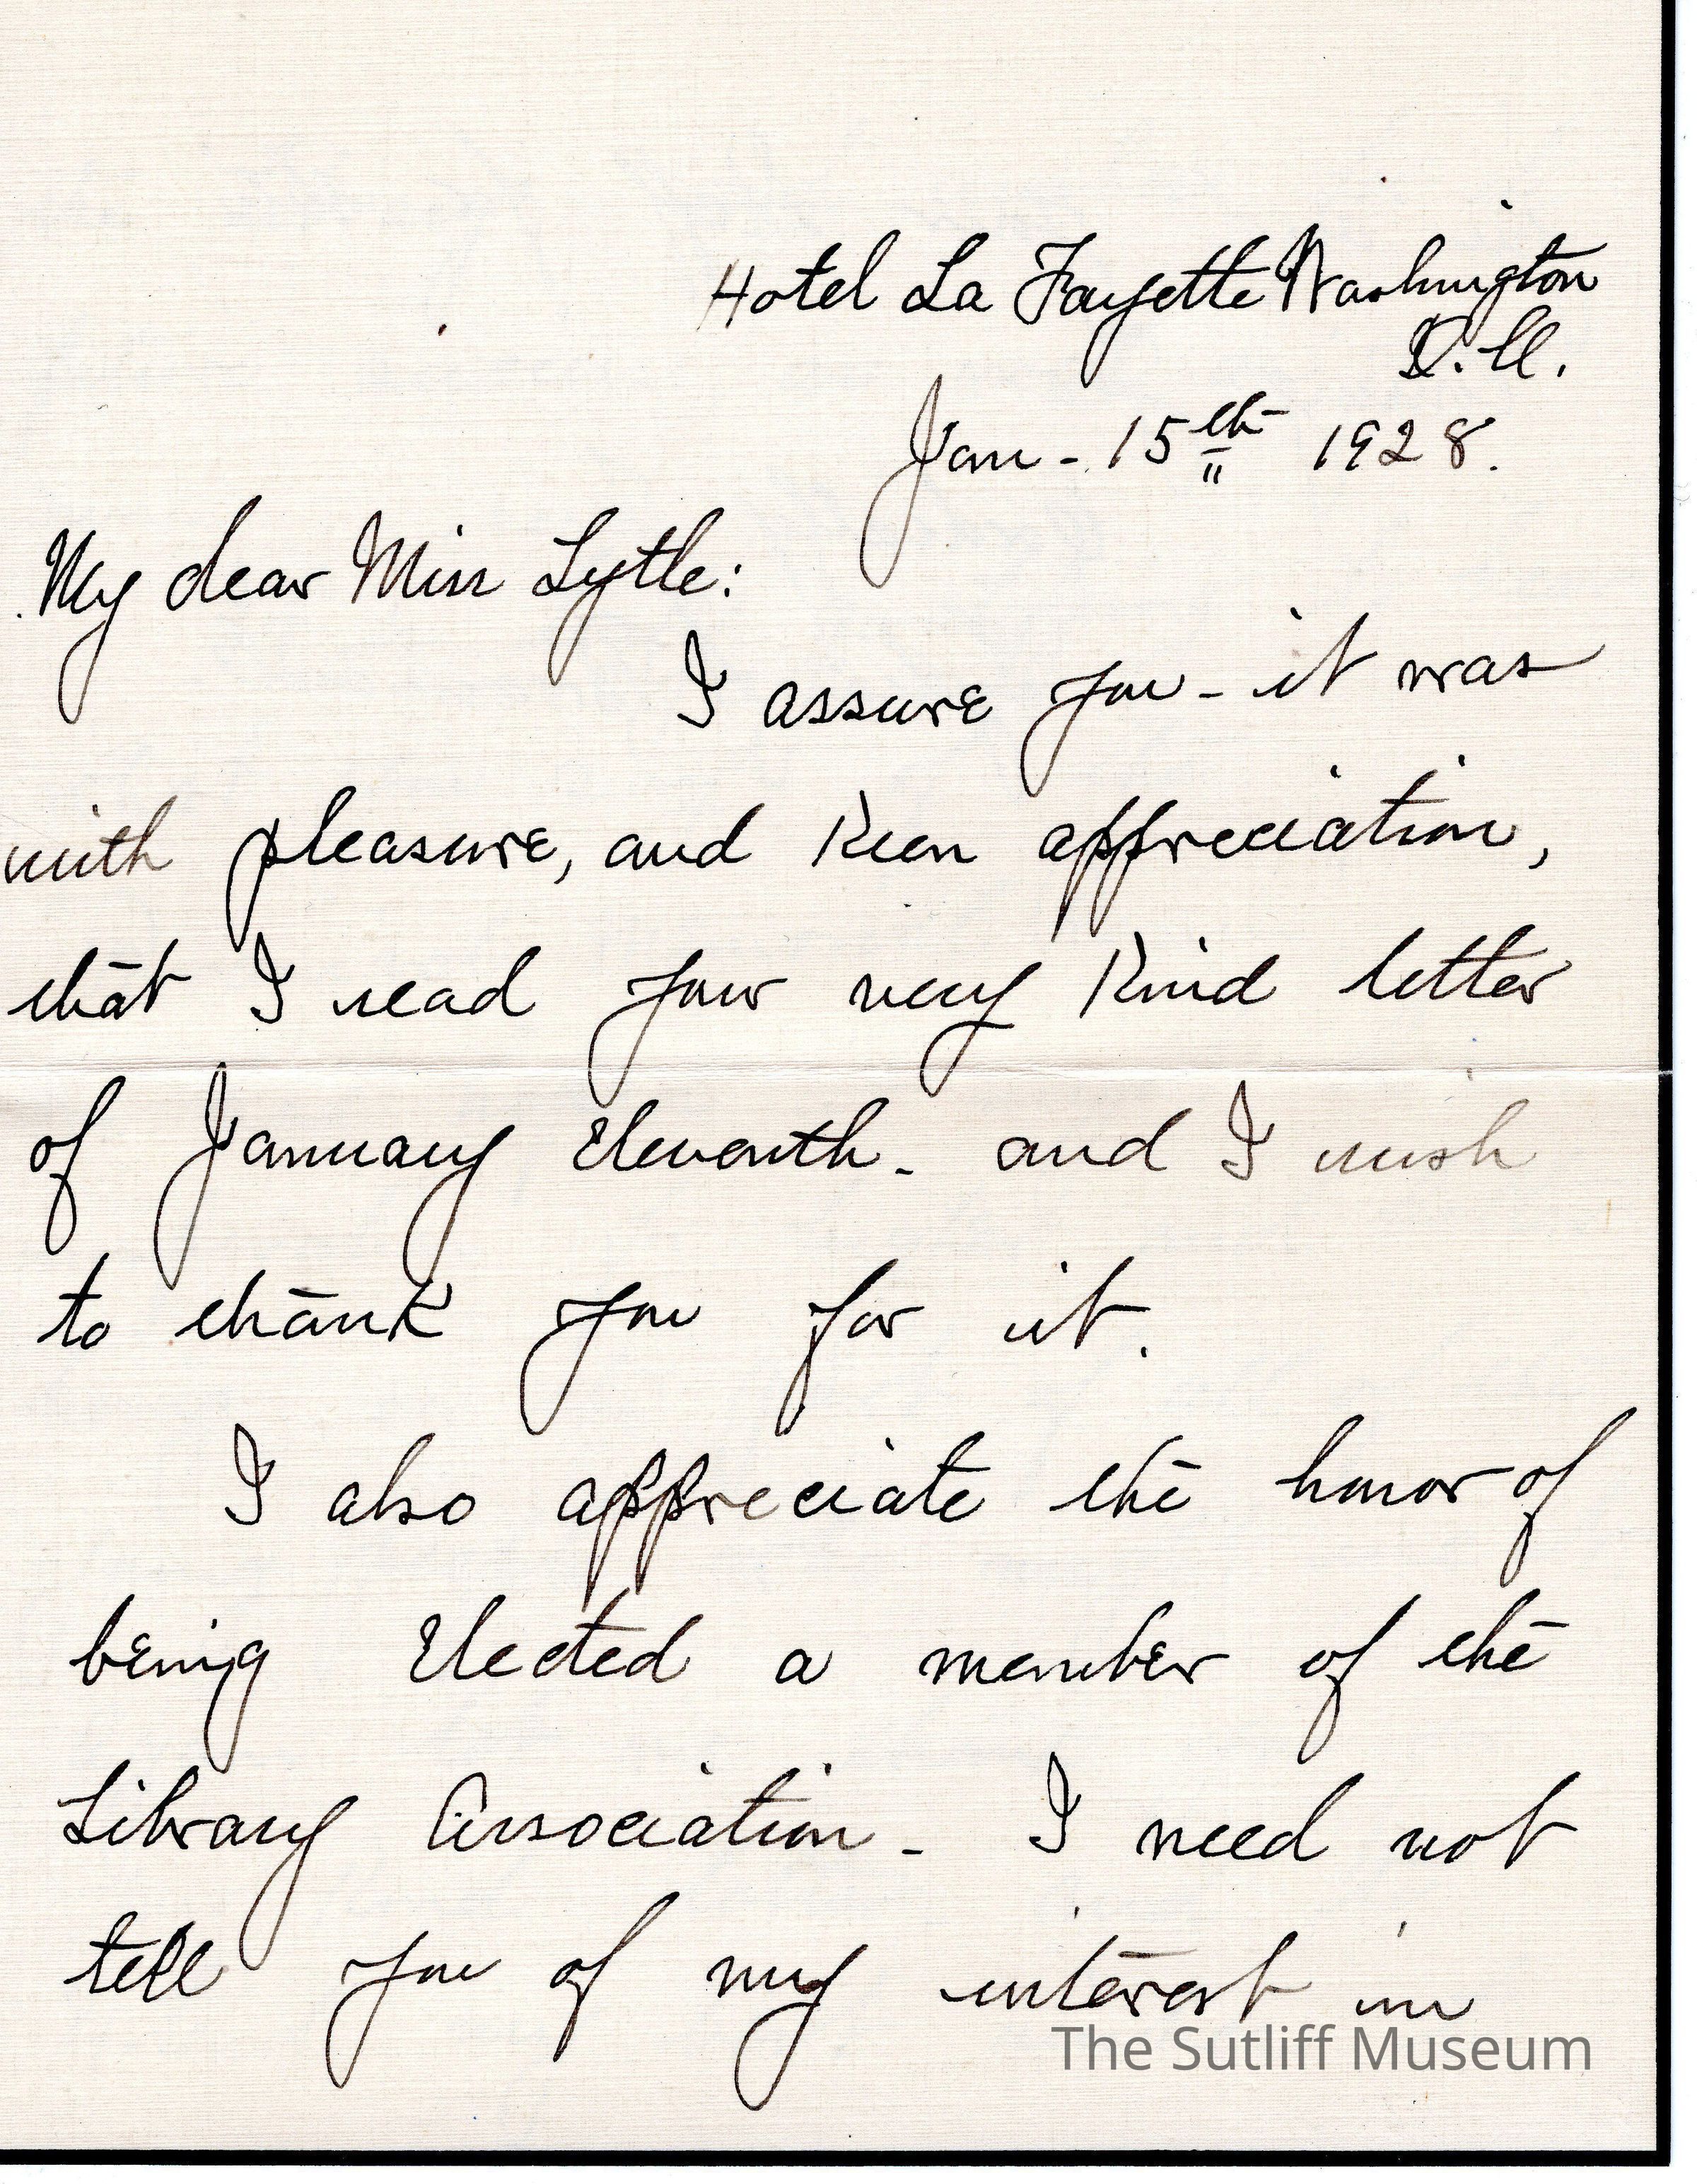 Hotel La Fayette Washington
D.C.
Jan - 15th 1928.
My dear Miss Lytle:
I assure you - it was
with pleasure, and keen appreciation,
that I read your very kind letter
of January Eleventh - and I wish
to thank you for it.
I also appreciate the honor of
being Elected a member of the
Library Association - I need not
tell you of my interest in
The Sutliff Museum